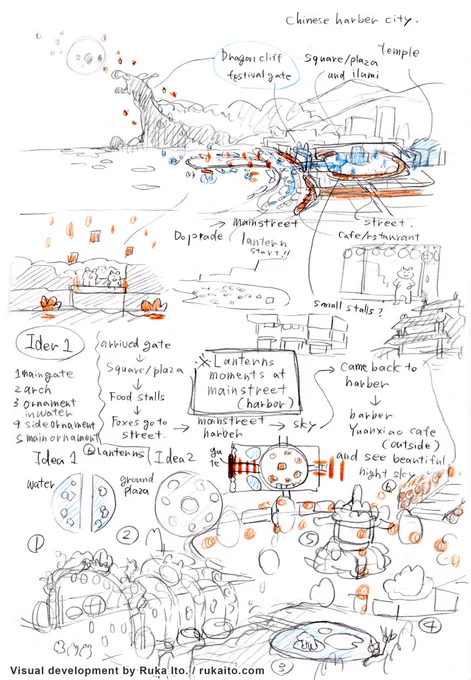 Chinese harbor city.
Dragon cliff
festival gate
square/plaza
and ilumi
temple
→ mainstreet
Do prade / lantern
start!!
street.
cafe/rstaurant
small stalls?
Ider 1
1 maingate
2 arch
3 ornament
inwater
4 sideornament
5 mainornament
6 lanterns
arrived gate
↓
Square/plaza
↓
Food stalls
↓
Foxes go to
street.
→ mainstreet
harber
→ sky
※ Lanterns
moments at
mainstreet
(harbor)
Came back to
harber
↓
barber
Yuanxiao cafe
(outside)
and see beautiful
night sky
Idea 1
water
Idea 2
ground
plaza
ga
te
1
2
3
4
5
6
Visual development by Ruka Ito. // rukaito.com